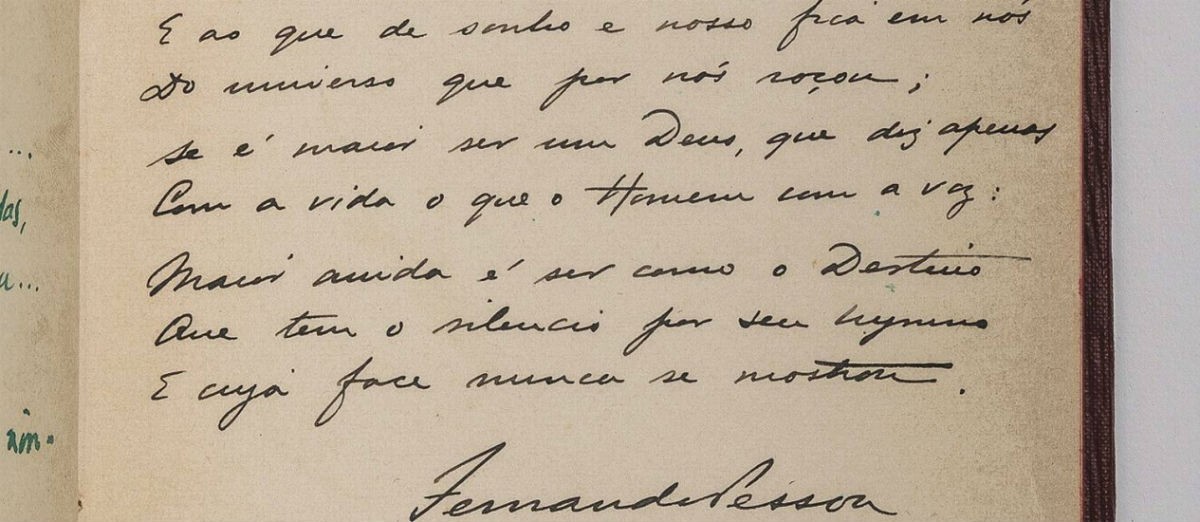 E ao que de sonho e nosso fica em nós
Do universo que por nós roçou;
Se é maior ser um Deus, que diz apenas
Com a vida o que o Homem com a voz:
Maior ainda é ser como o Destino
Que tem o silencio por seu hymno
E cuja face nunca se mostrou.
Fernando Pessoa
...
das,
...
ain-